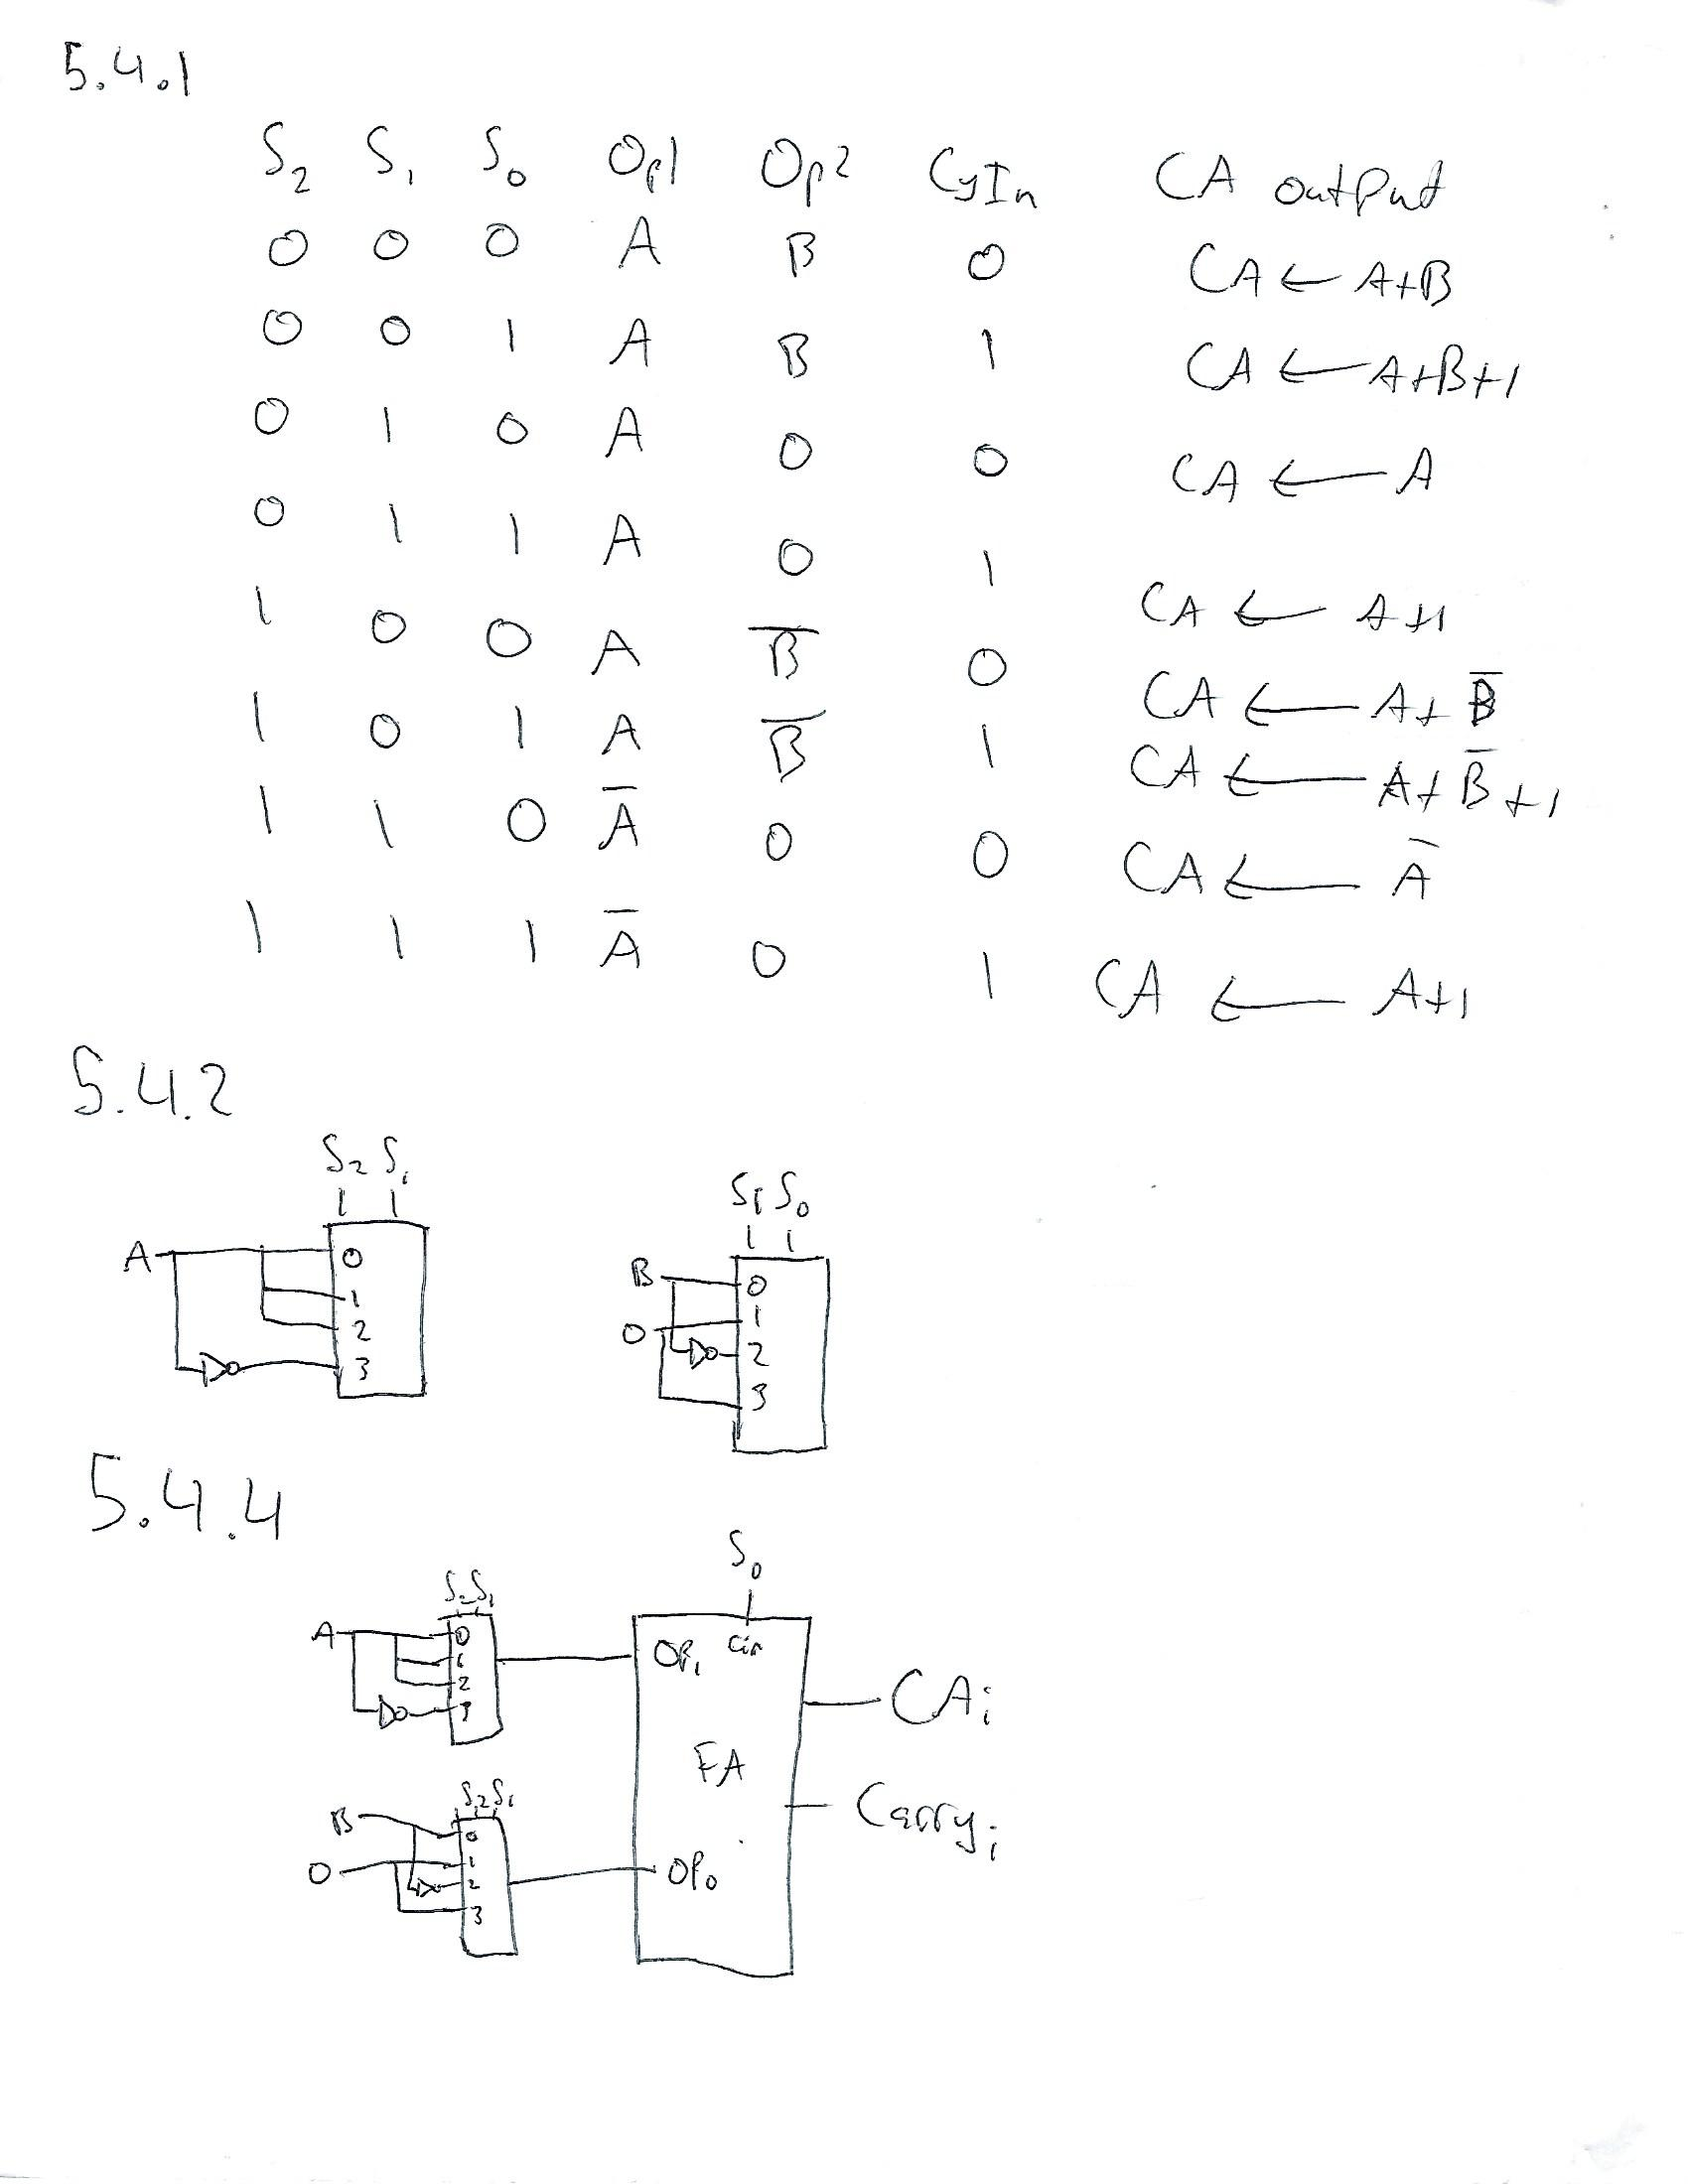 5.4.1
S₂ S₁ S₀ Op1 Op2 CyIn CA output
0 0 0 A B 0 CA ← A+B
0 0 1 A B 1 CA ← A+B+1
0 1 0 A 0 0 CA ← A
0 1 1 A 0 1 CA ← A+1
1 0 0 A B̅ 0 CA ← A+B̅
1 0 1 A B̅ 1 CA ← A+B̅+1
1 1 0 A̅ 0 0 CA ← A̅
1 1 1 A̅ 0 1 CA ← A+1
5.4.2
S₂ S₁
A
0
1
2
3
S₁ S₀
B
0
0
1
2
3
5.4.4
S₀
S₂ S₁
A
0
1
2
3
OP₁ Cin
CAᵢ
FA
S₂ S₁
B
0
0
1
2
3
Carryᵢ
OP₀